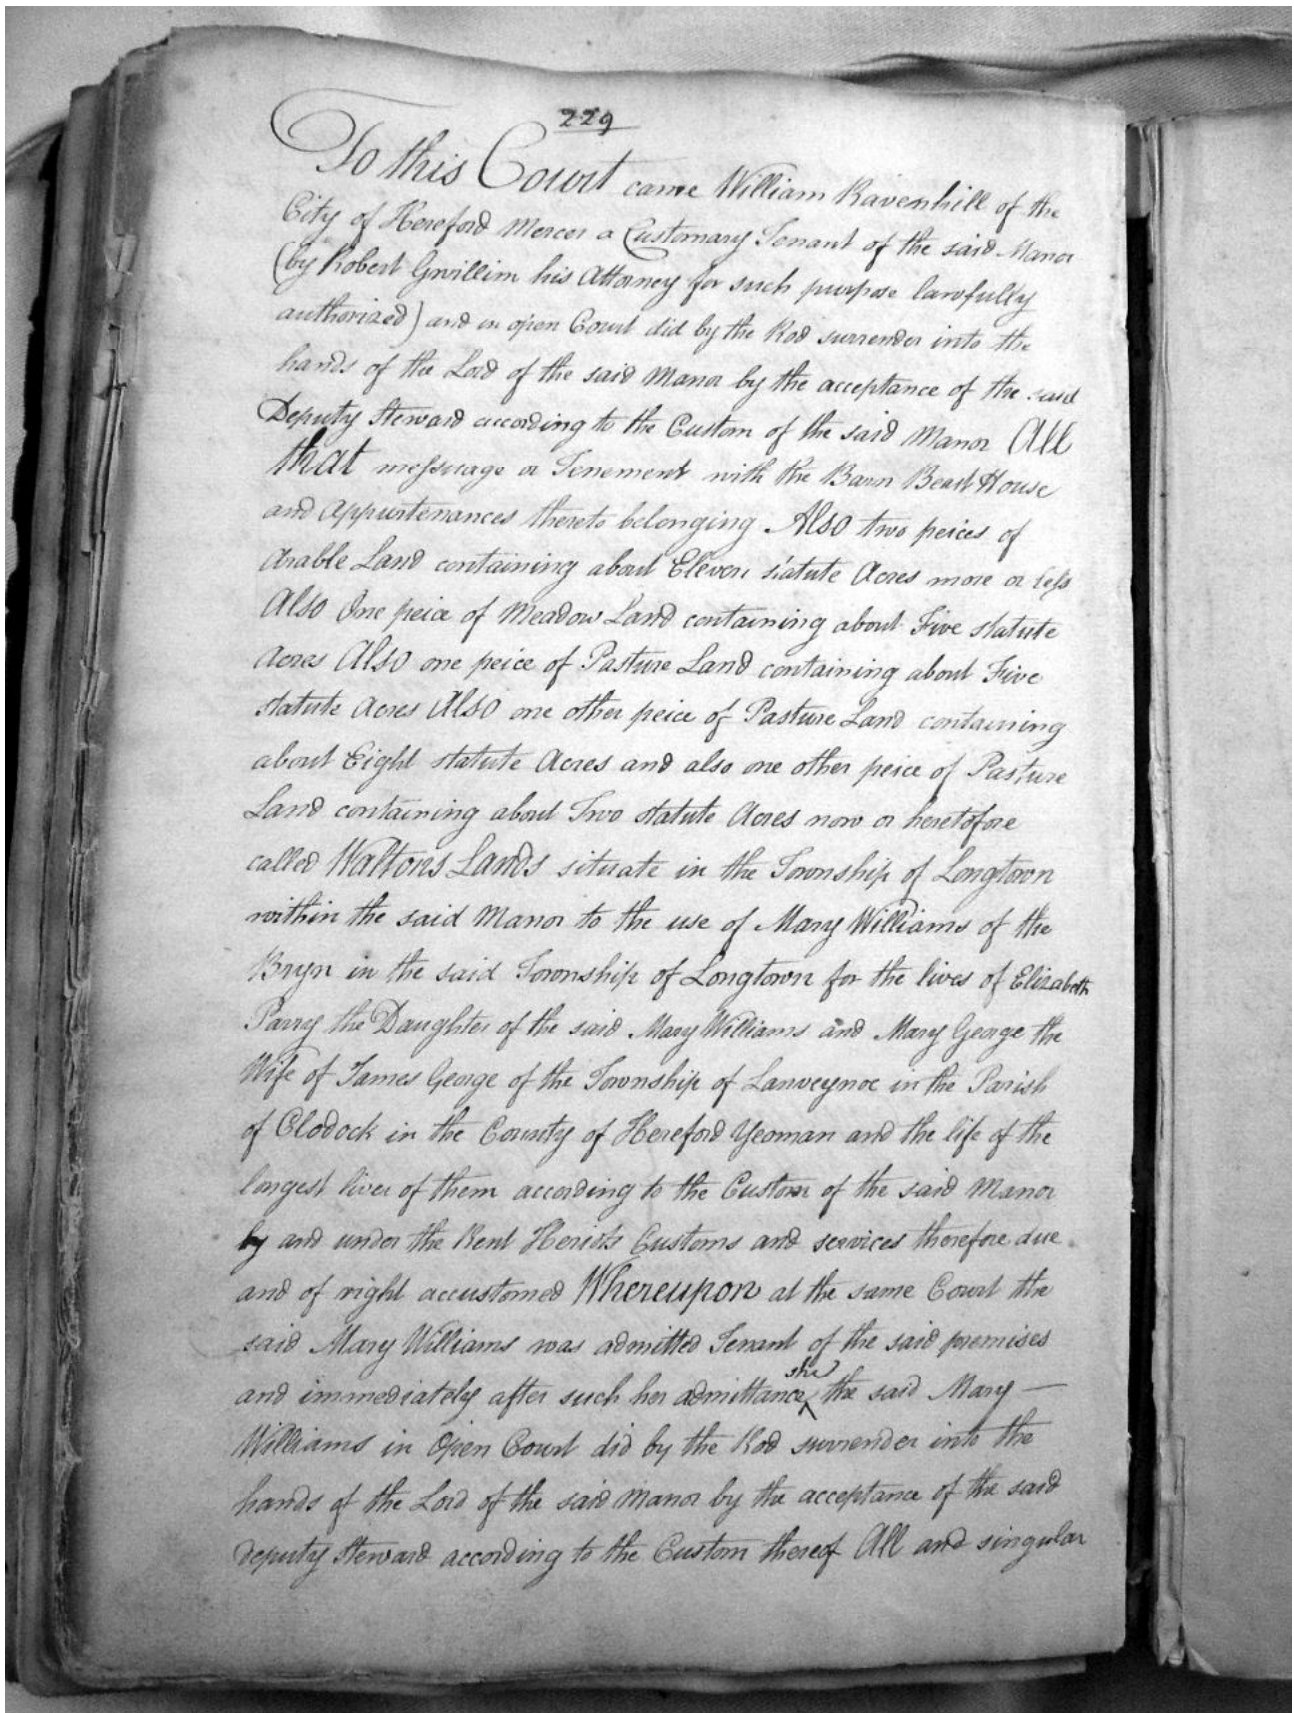 229
To this Court came William Ravenhill of the
City of Hereford Mercer a Customary Tenant of the said Manor
(by Robert Gwillim his Attorney for such purpose lawfully
authorized) and in open Court did by the Rod surrender into the
hands of the Lord of the said Manor by the acceptance of the said
Deputy Steward according to the Custom of the said Manor All
that messuage or Tenement with the Barn Beast House
and Appurtenances thereto belonging Also two peices of
Arable Land containing about Eleven statute Acres more or less
Also One peice of Meadow Land containing about Five statute
Acres Also one peice of Pasture Land containing about Five
statute Acres Also one other peice of Pasture Land containing
about Eight statute Acres and also one other peice of Pasture
Land containing about Two statute Acres now or heretofore
called Waltons Lands situate in the Township of Longtown
within the said Manor to the use of Mary Williams of the
Bryn in the said Township of Longtown for the lives of Elizabeth
Parry the Daughter of the said Mary Williams and Mary George the
Wife of James George of the Township of Lanveynoe in the Parish
of Clodock in the County of Hereford Yeoman and the life of the
longest liver of them according to the Custom of the said Manor
by and under the Rent Heriots Customs and services therefore due
and of right accustomed Whereupon at the same Court the
said Mary Williams was admitted Tenant of the said premises
and immediately after such her admittance she the said Mary —
Williams in Open Court did by the Rod surrender into the
hands of the Lord of the said Manor by the acceptance of the said
deputy Steward according to the Custom thereof All and singular